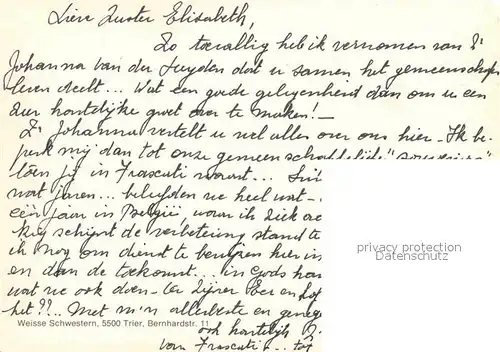 Lieve Zuster Elisabeth,
Zo toevallig heb ik vernomen van Zr
Johanna van der Heyden dat u samen het gemeenschaps
leven deelt... Wat een goede gelegenheid dan om u een
zeer hartelijke groet over te maken! —
Zr Johanna vertelt u wel alles over ons hier - Ik be-
perk mij dan tot onze gemeenschappelijke
toen je in Frascati woont...
wat jaren... beleefden we heel wat -
eén jaar in België, waar ik ziek
schijnt de verbetering stand te
ik nog om dienst te bewijzen hier in
en dan de toekomst... in Gods han
wat we ook doen - ter Zijner Eer en lof
het?? Met m'n allerbeste en geneg
Weisse Schwestern, 5500 Trier, Bernhardstr. 11
ook hartelijk
van Frascati
privacy protection
Datenschutz